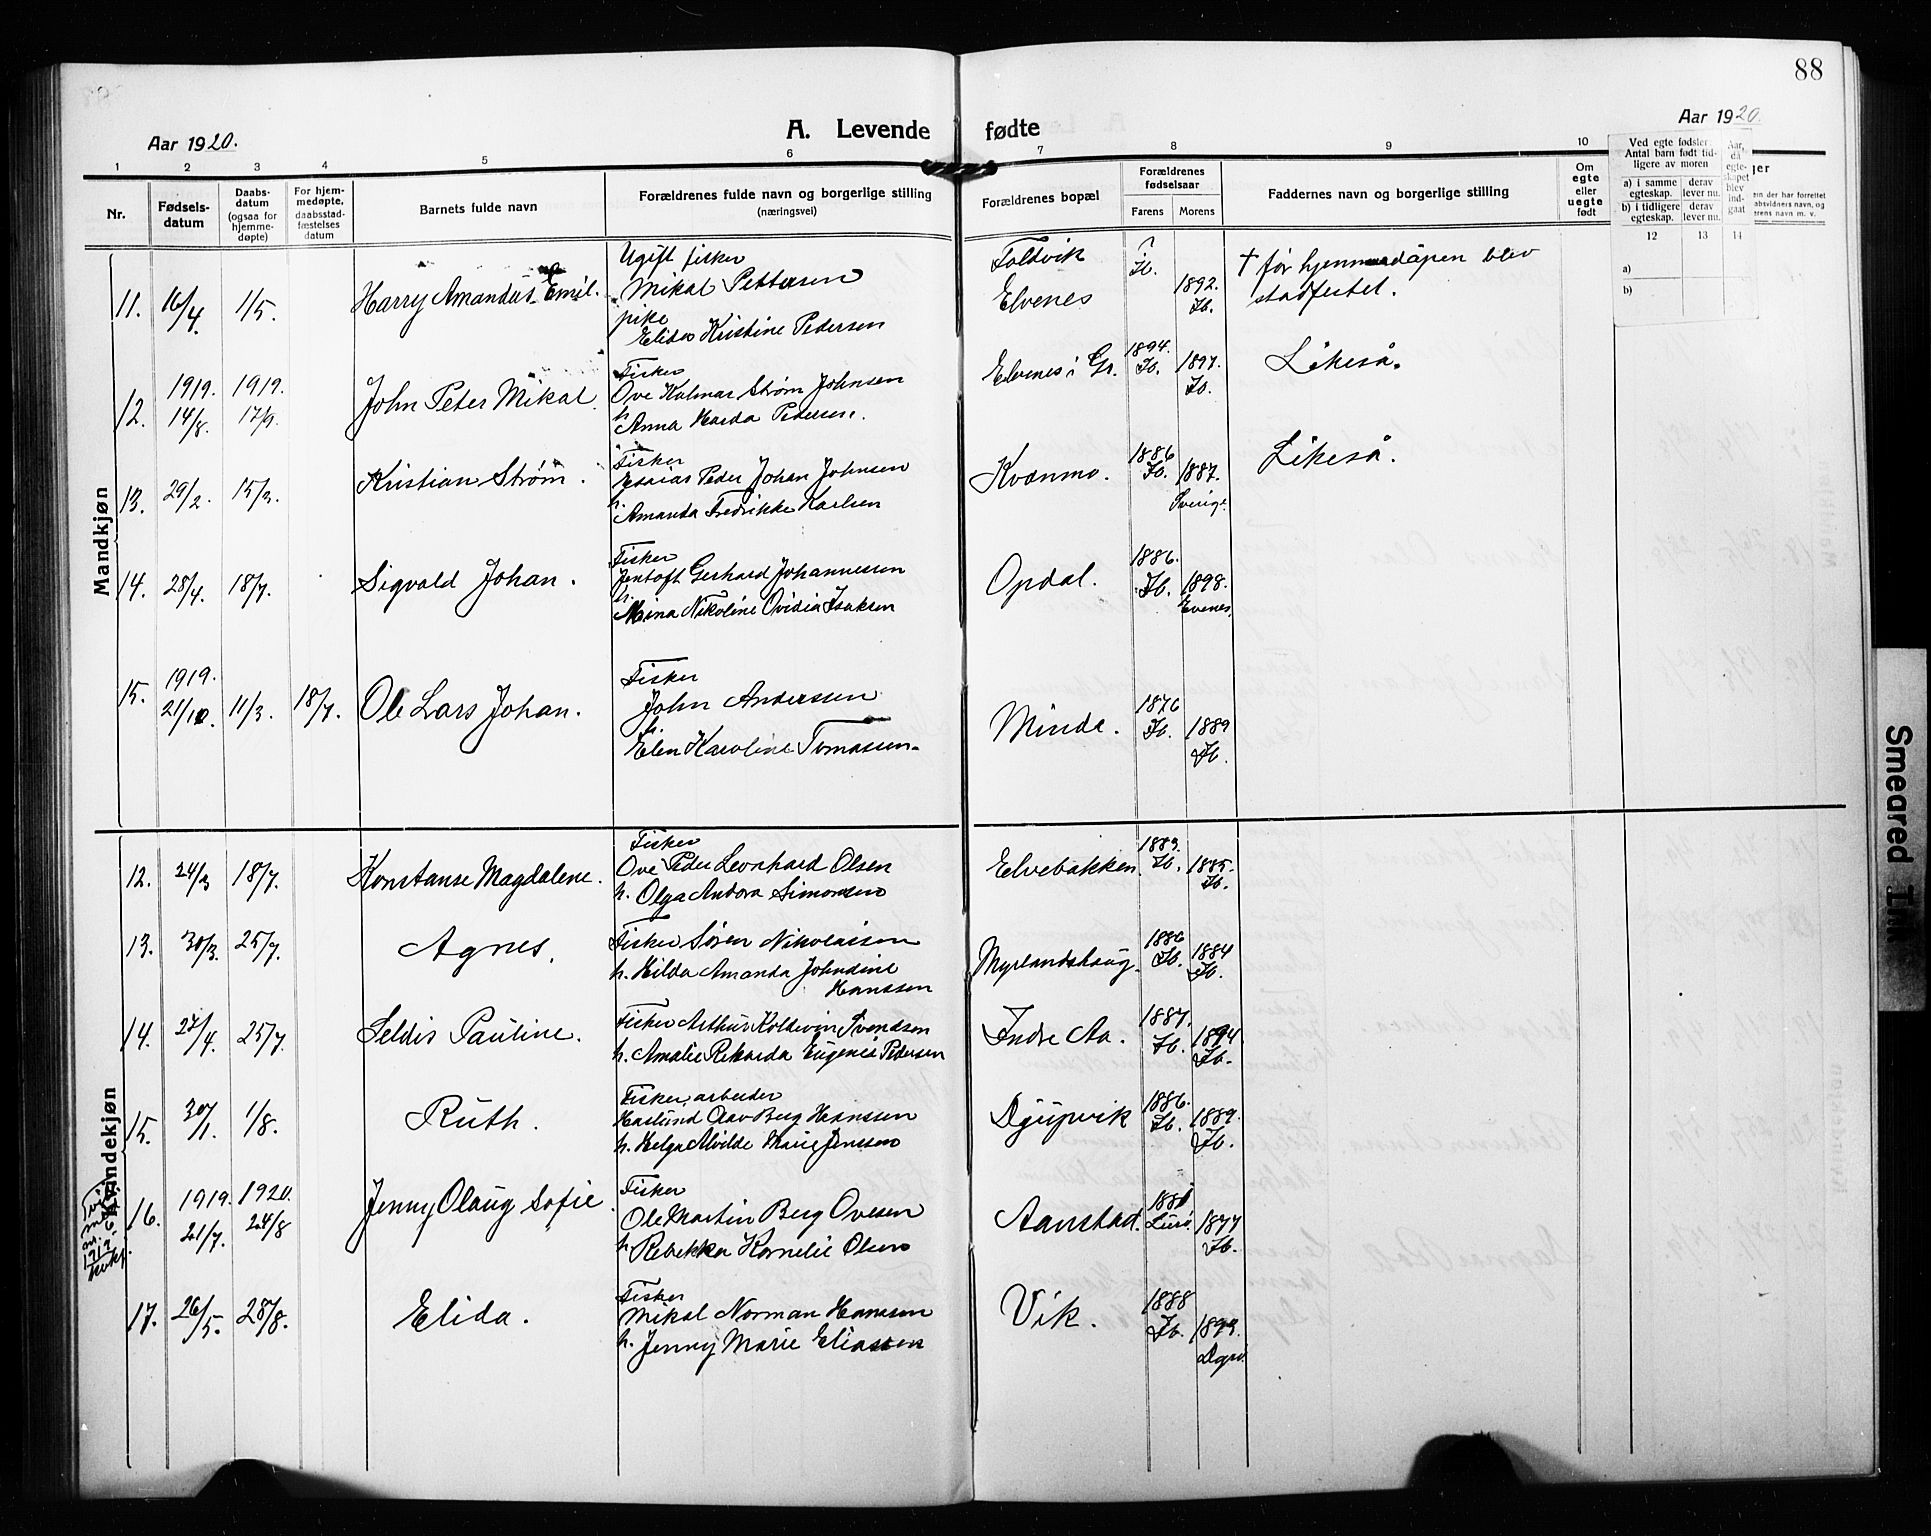 88
A. Levende fødte
Aar 1920.
Aar 1920.
1 2 3 4 5 6 7 8 9 10
Nr.
Fødsels-
datum
Daabs-
datum
(ogsaa for
hjemme-
døpte)
For hjem-
medøpte,
daabsstad-
fæstelses
datum
Barnets fulde navn
Forældrenes fulde navn og borgerlige stilling
(næringsvei)
Forældrenes bopæl
Forældrenes
fødselsaar
Farens Morens
Faddernes navn og borgerlige stilling
Om
egte
eller
uegte
født
Ved egte fødsler,
Antal barn født tid-
ligere av moren
a) i samme
egteskap.
derav
lever nu.
b) i tidligere
egteskap.
derav
lever nu.
Aar,
da
egte-
skapet
blev
ind-
gaat
12 13 14
a)
b)
Mandkjøn
11. 16/4. 1/5. Harry Amandus Emil.
Ugift fisker
Mikal Pettersen
pike
Elida Kristine Pedersen
Foldvik
Elvenes
?
Ib.
1892.
Ib.
† før hjemmedåpen blev
stadfestet.
12. 1919. 14/8. 1919. 17/9. John Peter Mikal.
Fisker
Ove Kalmar Strøm Johnsen
h.
Anna Harda Pedersen.
Elvenes i Gr.
1894.
Ib.
1897.
Ib.
Likeså.
13. 29/2. 15/3. Kristian Strøm.
Fisker
Esaias Peder Johan Johnsen
h.
Amanda Fredrikke Karlsen
Kvanmo.
1886
Ib.
1887.
Sverige
Likeså.
14. 28/4. 18/7. Sigvald Johan.
Fisker
Jentoft Gerhard Johannessen
h.
Mina Nikoline Ovidia Isaksen
Opdal.
1886.
Ib.
1898.
Evenes
15. 1919. 21/10. 11/3. 18/7. Ole Lars Johan.
Fisker
John Anderssen
h.
Elen Karoline Tomassen.
Minde.
1876
Ib.
1889
Ib.
Kvindekjøn
12. 24/3 18/7. Konstanse Magdalene.
Fisker
Ove Peder Leonhard Olsen
h. Olga Andora Simonsen
Elvebakken.
1883.
Ib.
1885.
Ib.
13. 30/3. 25/7. Agnes.
Fisker Søren Nikolaisen
h. Hilda Amanda Johndine
Hanssen
Myrlandshaug.
1886
Ib.
1884
Ib.
14. 27/4. 25/7. Seldis Pauline.
Fisker Arthur Koldevin Svendsen
h. Amalie Rikarda Eugenie Pedersen
Indre Aa.
1887.
Ib.
1894
Ib.
15. 30/1. 1/8. Ruth.
Fisker, arbeider
Haslund Oav Berg Hanssen
h. Helga Alvilde Marie Jenssen
Djupvik
1886.
Ib.
1889.
Ib.
16. 1919. 21/7. 1920. 24/8 Jenny Olaug Sofie.
Fisker
Ole Martin Berg Ovesen
h. Rebekka Kornelie Olsen
Aanstad.
1881
Lurø
1877
Ib.
17. 26/5. 28/8. Elida.
Fisker
Mikal Norman Hanssen
h. Jenny Marie Eliassen
Vik.
1888
Ib.
1893.
Smeared Ink